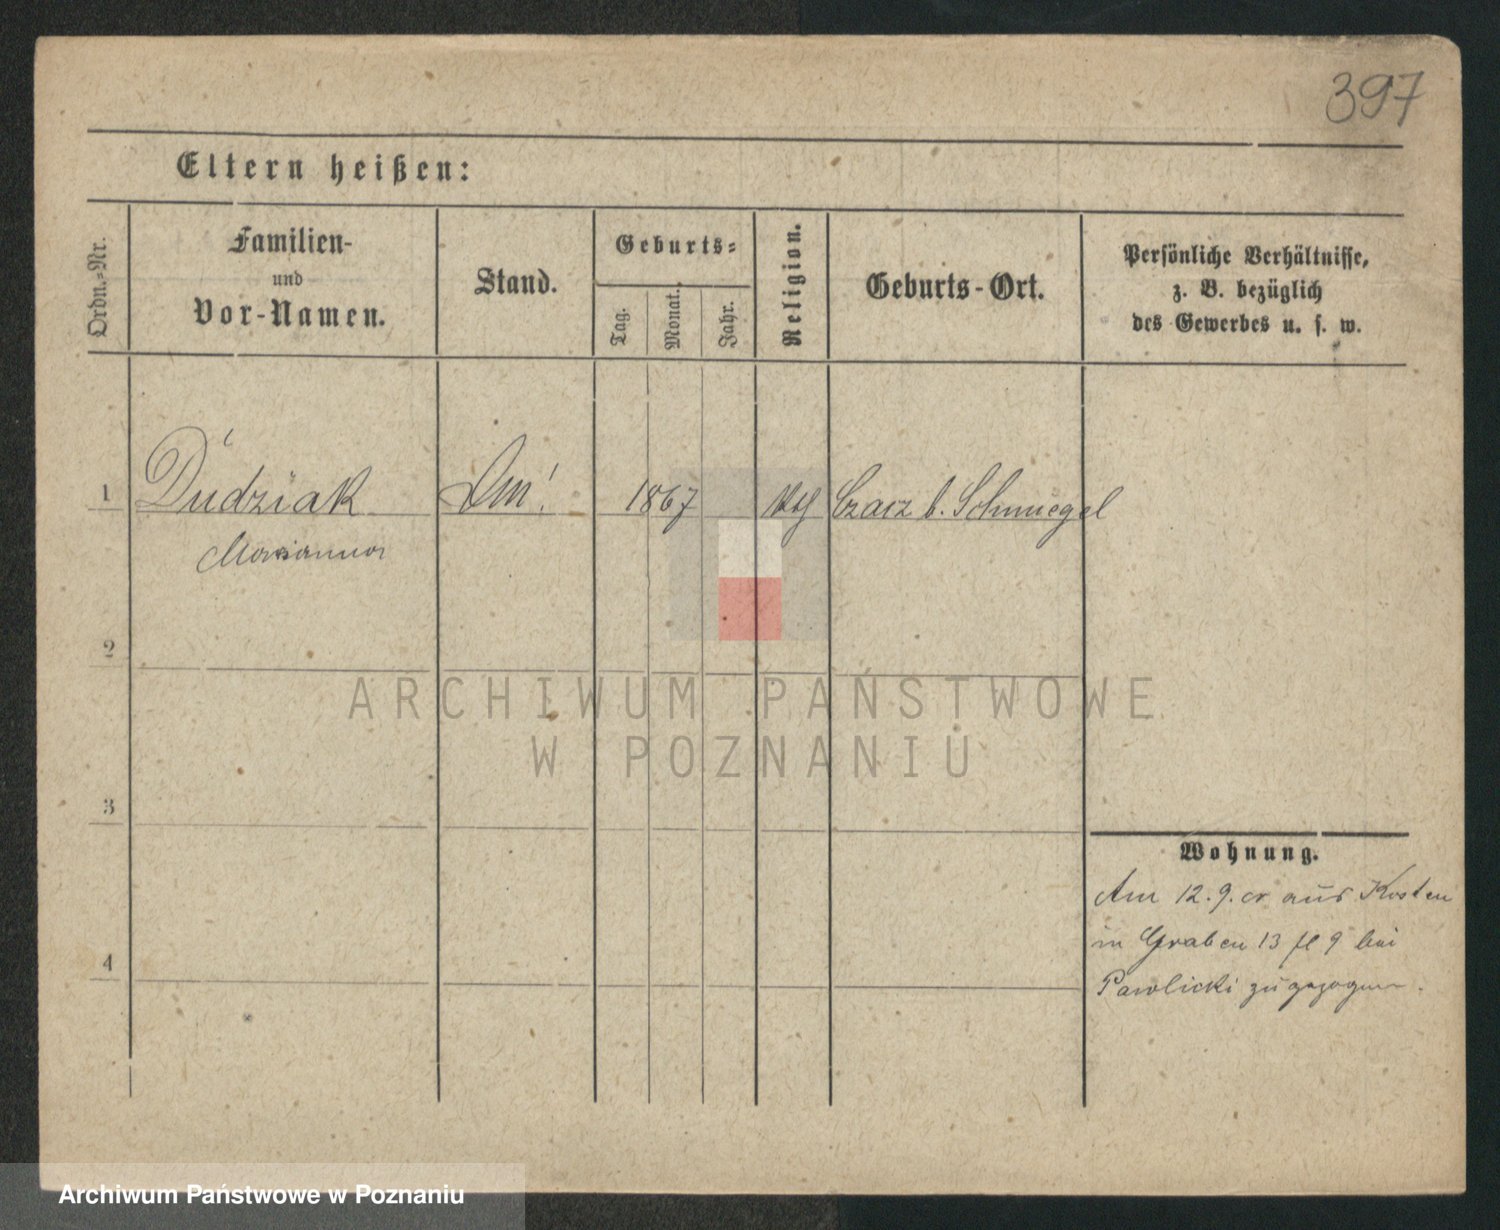 397
Eltern heißen:
Ordn.-Nr.
Familien-
und
Vor-Namen.
Stand.
Geburts-
Tag.
Monat.
Jahr.
Religion.
Geburts-Ort.
Persönliche Verhältnisse,
z. B. bezüglich
des Gewerbes u. s. w.
1 Dudziak 1867 Czacz b. Schmiegel
Marianna
2
ARCHIWUM PAŃSTWOWE
W POZNANIU
3
Wohnung.
Am 12.9. cr aus Kosten
in Graben 13 fl 9 bei
4
Pawlicki zugezogen.
Archiwum Państwowe w Poznaniu